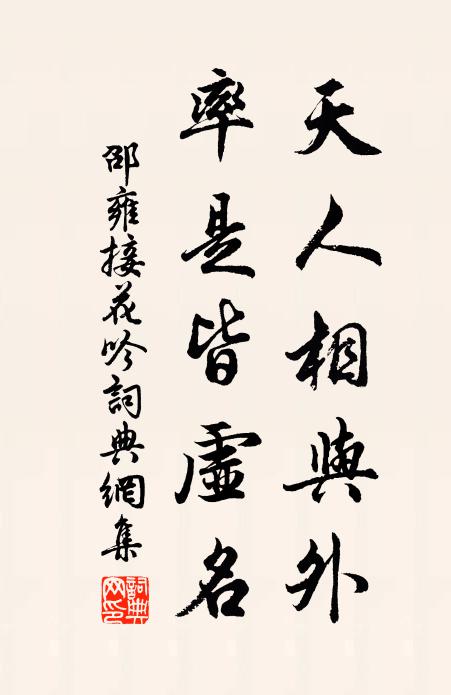 天人相與外
率是皆虛名
邵雍接花吟詞典網集
詞典網印